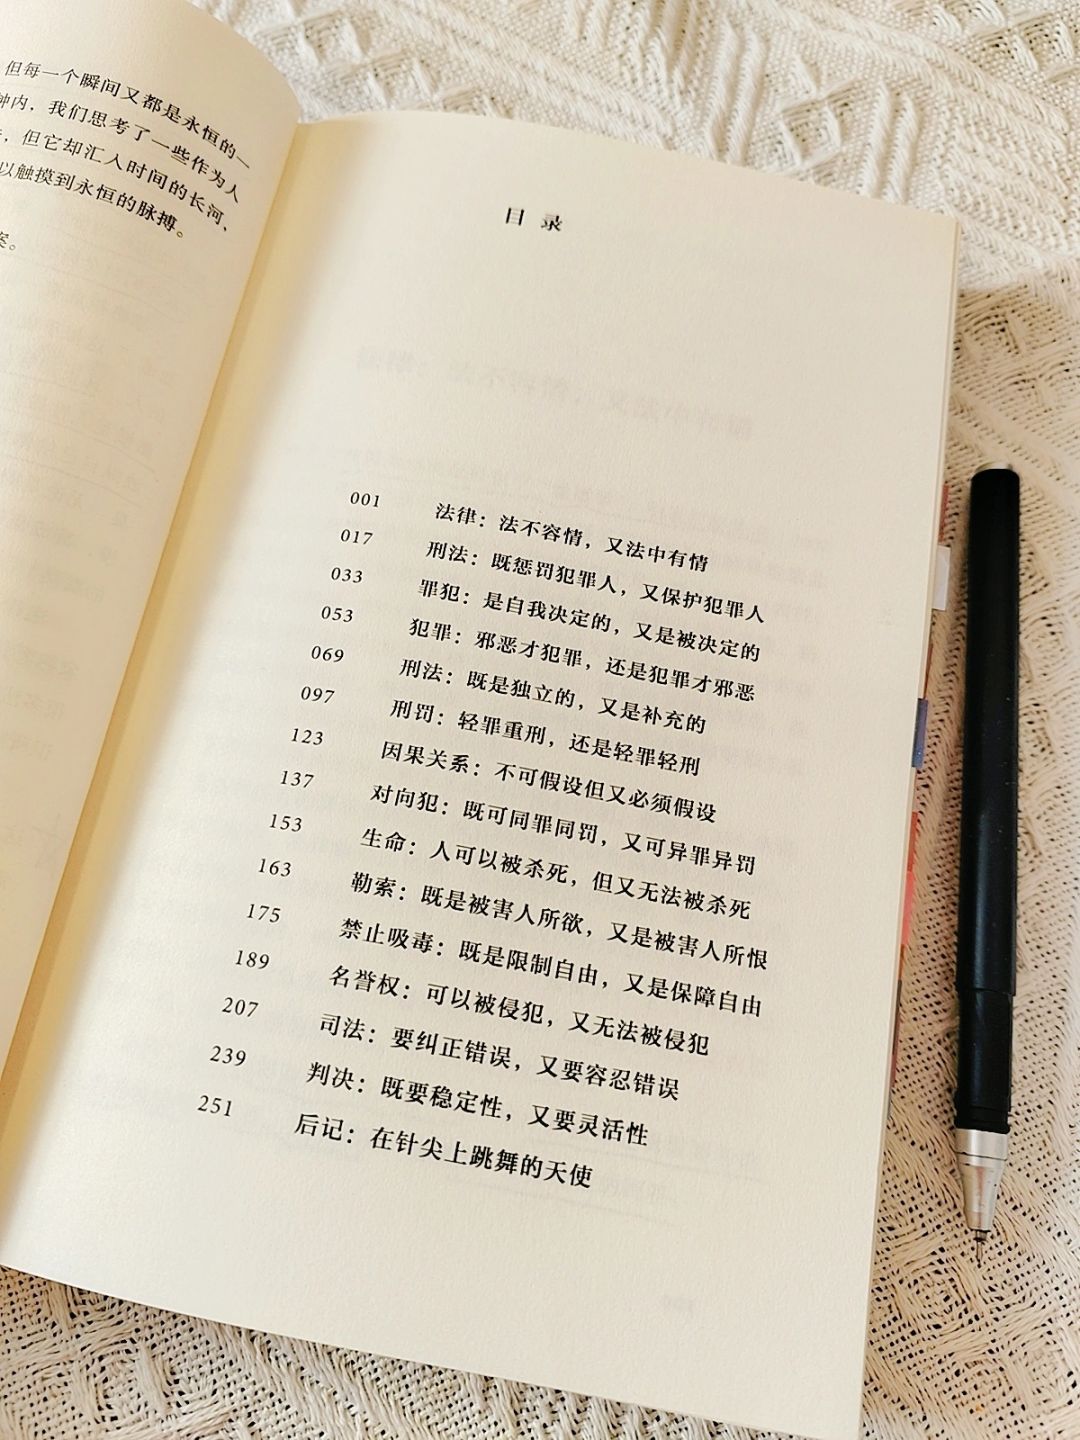 但每一个瞬间又都是永恒的一
钟内，我们思考了一些作为人
，但它却汇入时间的长河、
以触摸到永恒的脉搏。
案。
目录
001 法律：法不容情，又法中有情
017 刑法：既惩罚犯罪人，又保护犯罪人
033 罪犯：是自我决定的，又是被决定的
053 犯罪：邪恶才犯罪，还是犯罪才邪恶
069 刑法：既是独立的，又是补充的
097 刑罚：轻罪重刑，还是轻罪轻刑
123 因果关系：不可假设但又必须假设
137 对向犯：既可同罪同罚，又可异罪异罚
153 生命：人可以被杀死，但又无法被杀死
163 勒索：既是被害人所欲，又是被害人所恨
175 禁止吸毒：既是限制自由，又是保障自由
189 名誉权：可以被侵犯，又无法被侵犯
207 司法：要纠正错误，又要容忍错误
239 判决：既要稳定性，又要灵活性
251 后记：在针尖上跳舞的天使